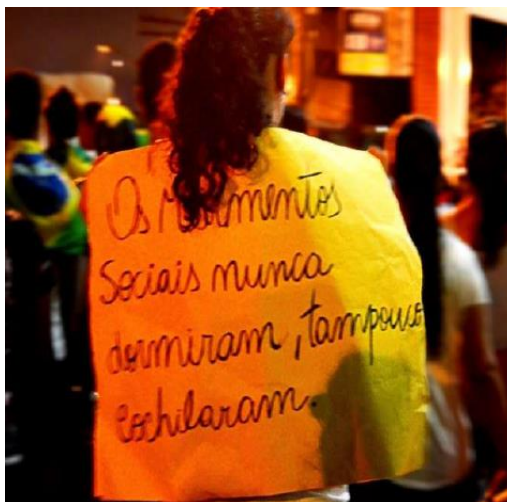 Os Movimentos
Sociais nunca
dormiram, tampouco
cochilaram.